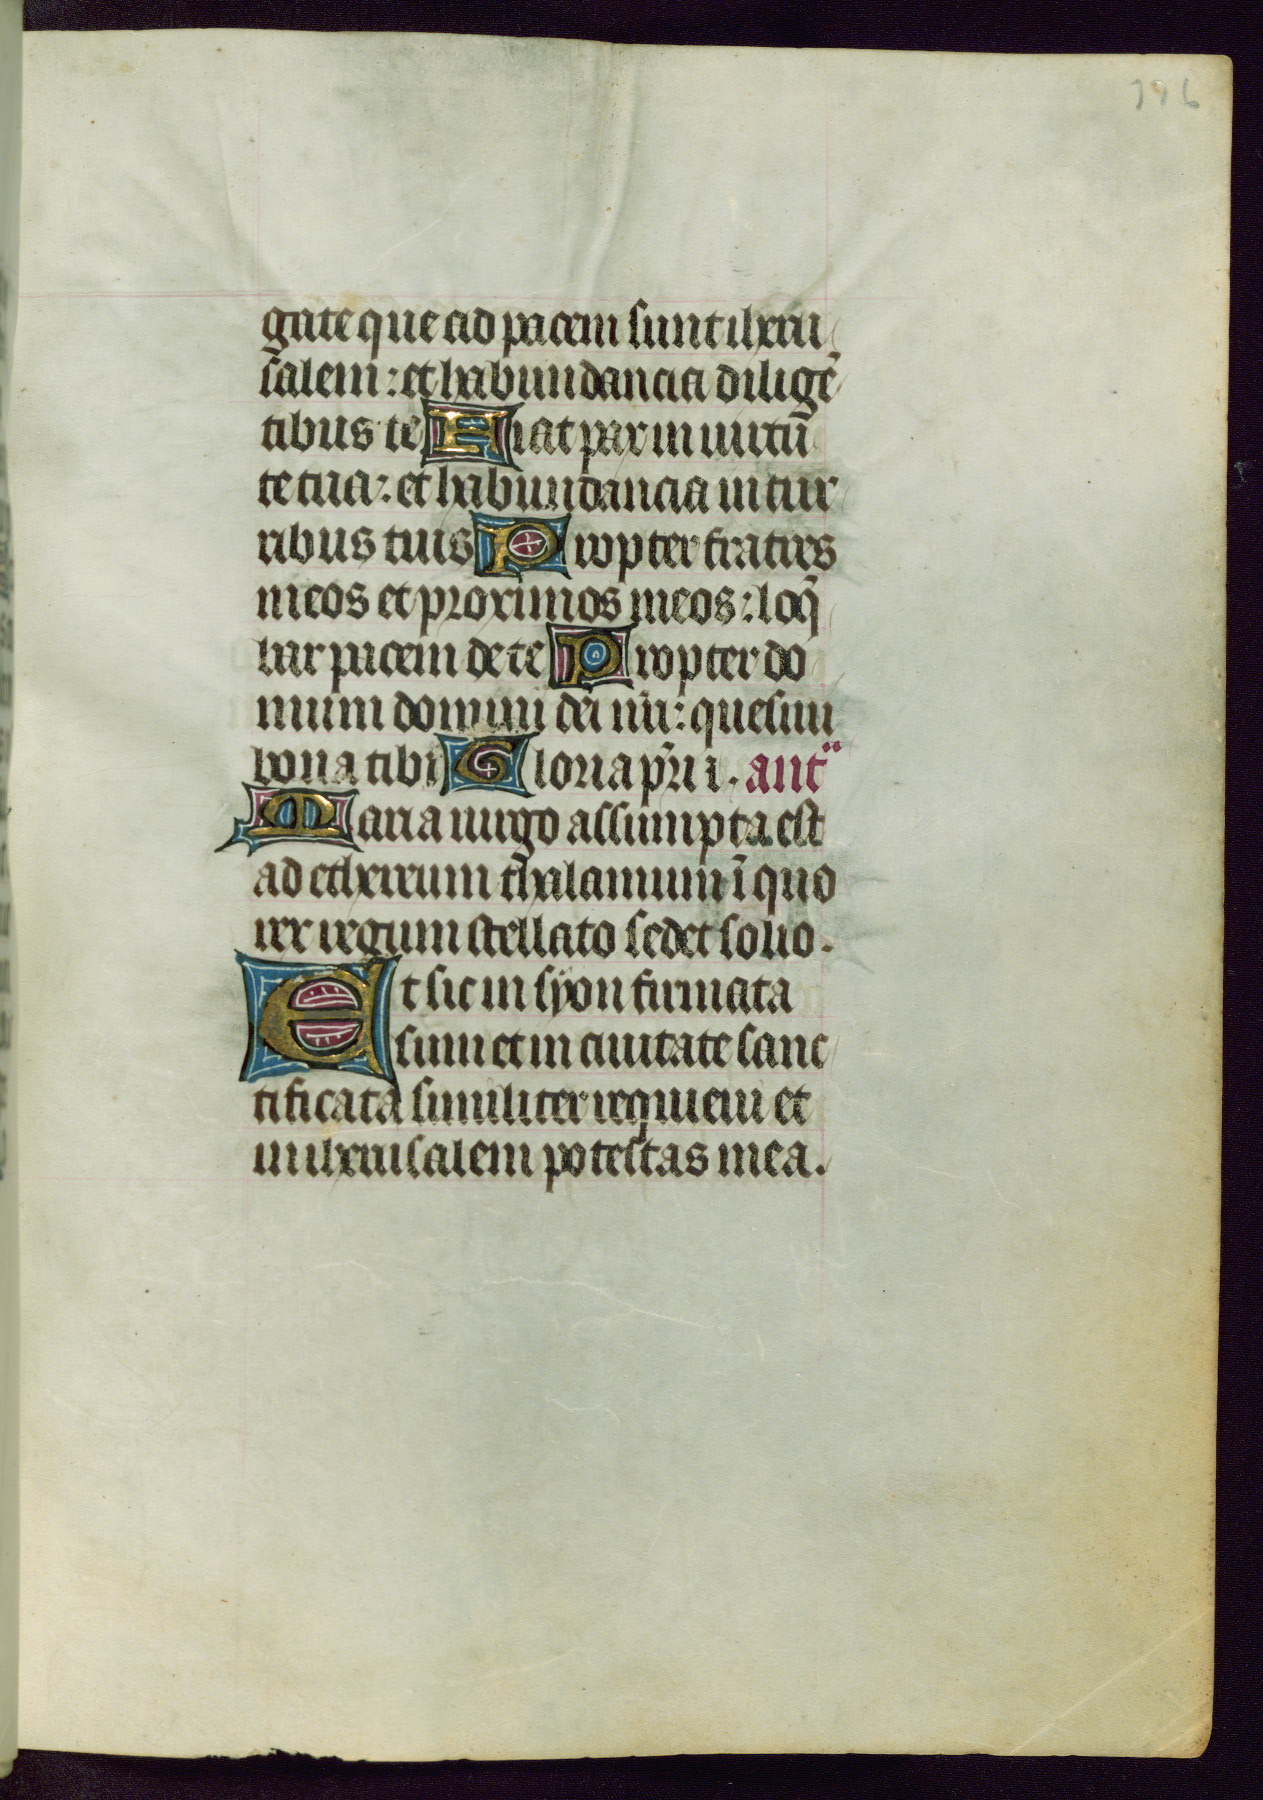 196
gate que ad pacem sunt iheru
salem: et habundancia diligē
tibus te Fiat pax in uirtū
te tua: et habundancia in tur
ribus tuis Propter fratres
meos et proximos meos: loq̄
bar pacem de te Propter do
mum domini dei nr̄i: quesiui
bona tibi Gloria pr̄i i. ant̄
Maria uirgo assumpta est
ad ethereum thalamum ī quo
rex regum stellato sedet solio.
Et sic in syon firmata
sum et in ciuitate sanc
tificata similiter requieui et
in iherusalem potestas mea.